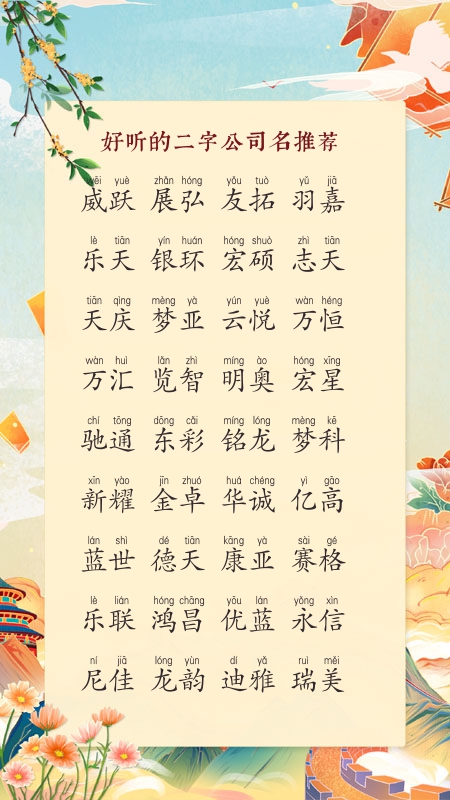 好听的二字公司名推荐
wēi yuè zhǎn hóng yǒu tuò yǔ jiā
威跃 展弘 友拓 羽嘉
lè tiān yín huán hóng shuò zhì tiān
乐天 银环 宏硕 志天
tiān qìng mèng yà yún yuè wàn héng
天庆 梦亚 云悦 万恒
wàn huì lǎn zhì míng ào hóng xīng
万汇 览智 明奥 宏星
chí tōng dōng cǎi míng lóng mèng kē
驰通 东彩 铭龙 梦科
xīn yào jīn zhuó huá chéng yì gāo
新耀 金卓 华诚 亿高
lán shì dé tiān kāng yà sài gé
蓝世 德天 康亚 赛格
lè lián hóng chāng yōu lán yǒng xìn
乐联 鸿昌 优蓝 永信
ní jiā lóng yùn dí yǎ ruì měi
尼佳 龙韵 迪雅 瑞美